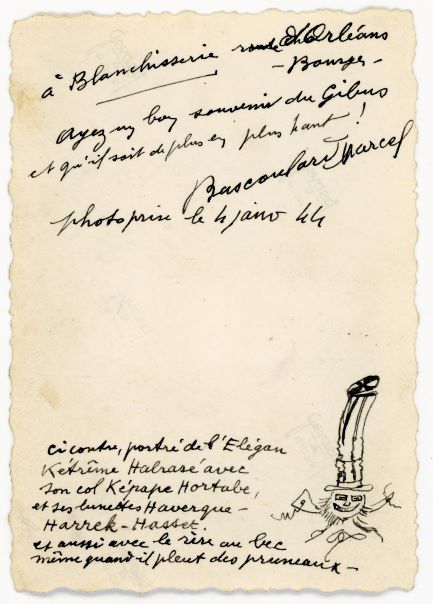 à Blanchisserie route d'Orléans
- Bourges -
Ayez un bon souvenir du Gibus
et qu'il soit de plus en plus haut !
Bascoulard Marcel
photo prise le 4 janv 44
ci contre, portré de l'Elégan
Kétrême Halrasé avec
son col Képape Hortabe,
et ses lunettes Haverque-
Harrek-Hasset.
et aussi avec le rire au bec
même quand il pleut des pruneaux -